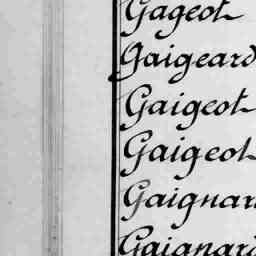 Gageot
Gaigeard
Gaigeot
Gaigeot
Gaignar
Gaignard